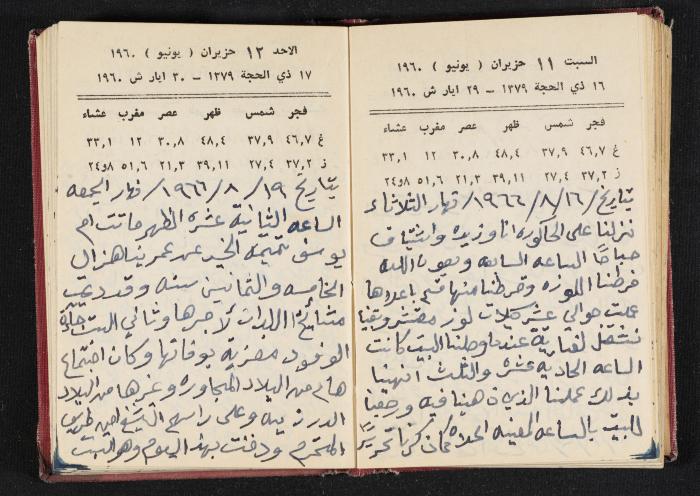 السبت ١١ حزيران ( يونيو ) ١٩٦٠
١٦ ذي الحجة ١٣٧٩ – ٢٩ ايار ش ١٩٦٠
فجر شمس ظهر عصر مغرب عشاء
غ ٤٦,٧ ٣٧,٩ ٤٨,٤ ٣٠,٨ ١٢ ٣٣,١
ز ٣٧,٢ ٢٧,٤ ٣٩,١١ ٢١,٣ ٥١,٦ ٢٤و٨
بتاريخ / ١٦ / ٨ / ١٩٦٦ / نهار الثلاثاء
نزلنا على الحاكوره انا وزيده واشتياق
صباحًا الساعه السابعه وبعون الله
فرطنا اللوزه وفرطنا منها قسم باعدها
عملت حوالي عشر كيلات لوز مقشر وبقينا
نشتغل لغاية عندما وصلنا البيت كانت
الساعه الحاديه عشره والثلث انهينا
بذلك عملنا الذي ذهبنا فيه ورجعنا
للبيت بالساعه المعينه اعلاه
الاحد ١٢ حزيران ( يونيو ) ١٩٦٠
١٧ ذي الحجة ١٣٧٩ – ٣٠ ايار ش ١٩٦٠
فجر شمس ظهر عصر مغرب عشاء
غ ٤٦,٧ ٣٧,٩ ٤٨,٤ ٣٠,٨ ١٢ ٣٣,١
ز ٣٧,٢ ٢٧,٤ ٣٩,١١ ٢١,٣ ٥١,٦ ٢٤و٨
بتاريخ ١٩ / ٨ / ١٩٦٦ / نهار الجمعه
الساعه الثانية عشره الظهر ماتت ام
يوسف تميمه الخير عن عمر يناهز ال
الخامسه والثمانين سنه وقد دعيت
مشايخ البلدات لأجرها وثاني البت جائة
الوفود معزية بوفاتها وكان اجتماع
هام من البلاد المجاوره وغيرها من البلاد
الدرزيه وعلى راسهم الشيخ امين طريف
المحترم ودفنت بهذا اليوم وهو السبت